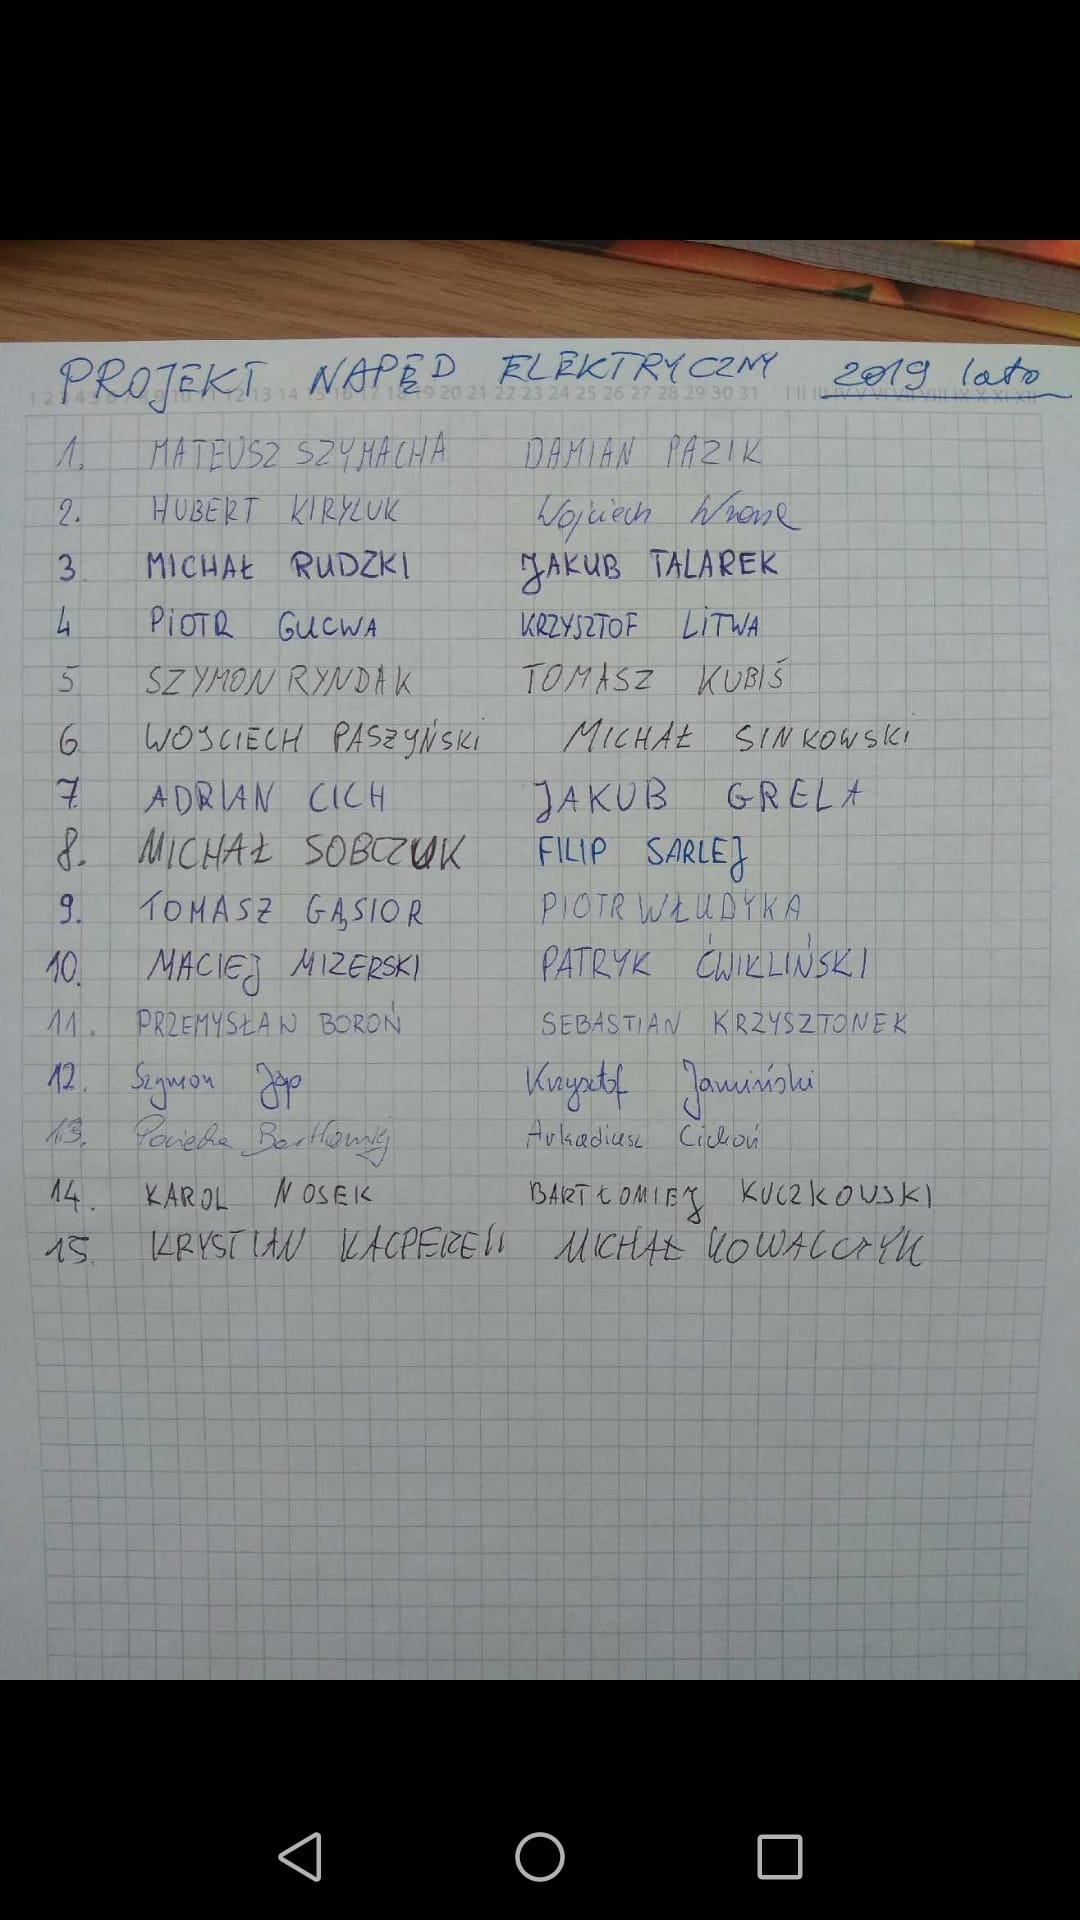 PROJEKT NAPĘD ELEKTRYCZNY 2019 lato
1 2 3 4 5 6 7 8 9 10 11 12 13 14 15 16 17 18 19 20 21 22 23 24 25 26 27 28 29 30 31 I II III IV V VI VII VIII IX X XI XII
1. MATEUSZ SZYMACHA DAMIAN PAZIK
2. HUBERT KIRYLUK Wojciech Wrona
3 MICHAŁ RUDZKI JAKUB TALAREK
4 PIOTR GUCWA KRZYSZTOF LITWA
5 SZYMON RYNDAK TOMASZ KUBIŚ
6 WOJCIECH PASZYŃSKI MICHAŁ SINKOWSKI
7. ADRIAN CICH JAKUB GRELA
8. MICHAŁ SOBCZUK FILIP SARLEJ
9. TOMASZ GĄSIOR PIOTR WŁUDYKA
10. MACIEJ MIZERSKI PATRYK ĆWIKLIŃSKI
11. PRZEMYSŁAW BOROŃ SEBASTIAN KRZYSZTONEK
12. Szymon Jop Krzysztof Jamiński
13. Pociecha Bartłomiej Arkadiusz Cichoń
14. KAROL NOSEK BARTŁOMIEJ KUCZKOWSKI
15. KRYSTIAN KACPEREK MICHAŁ KOWALCZYK